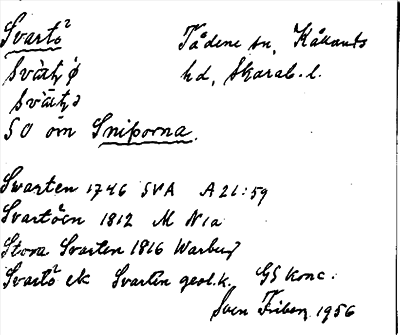 Svartö² Tådene sn, Kållands
hd, Skarab. l.
SO om Sniporna.
Swarten 1746 SVA A21:59
Svartöen 1812 M N1a
Stora Svarten 1816 Warburg
Svartö² ek Svarten geol.k. GS konc.
Sven Friberg 1956